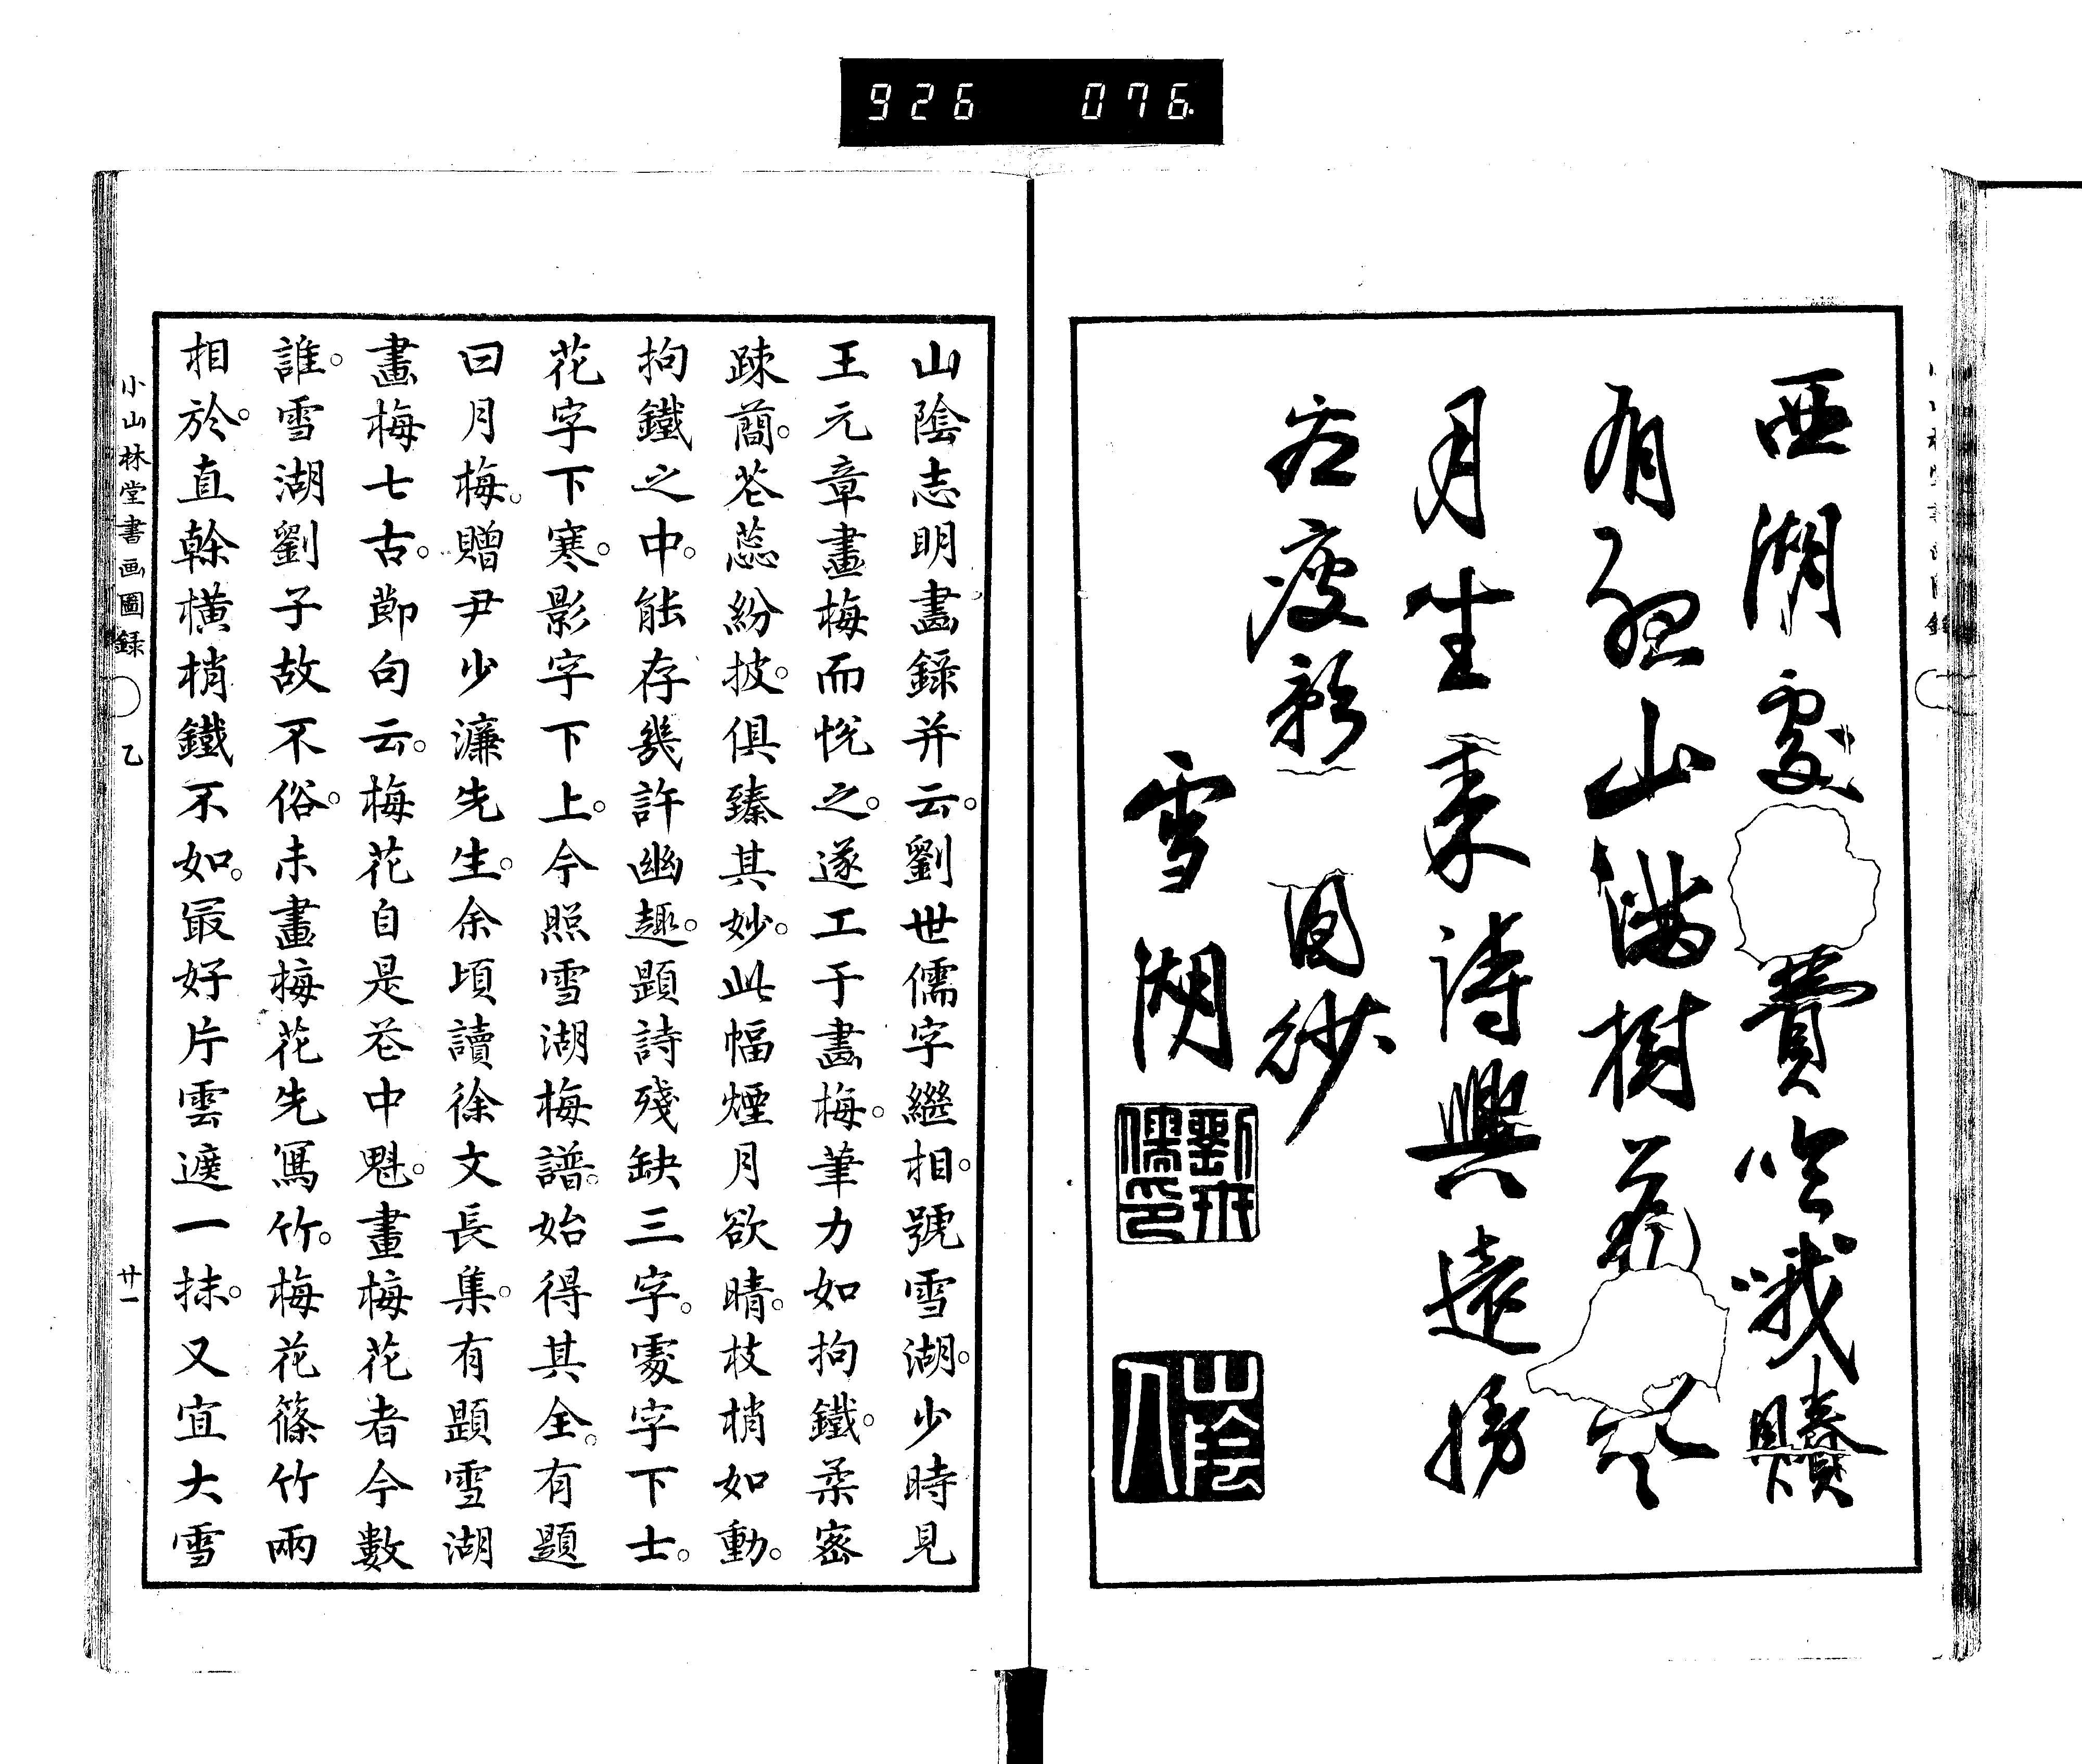 926 076
西湖處
費吟哦賸
有孤山滿樹花
寒
月生來詩興遠
勝
右瘦影
雪湖
劉世儒印
山陰人
山陰志明畫錄并云。劉世儒字繼相。號雪湖。少時見
王元章畫梅而悅之。遂工于畫梅。筆力如拘鐵。柔密
踈蕳。苍蕊紛披。俱臻其妙。此幅煙月欲晴。枝梢如動。
拘鐵之中。能存幾許幽趣。題詩殘缺三字。處字下士。
花字下寒。影字下上。今照雪湖梅譜。始得其全。有題
曰月梅。贈尹少濂先生。余頃讀徐文長集。有題雪湖
畫梅七古。節句云。梅花自是苍中魁。畫梅花者今數
誰。雪湖劉子故不俗。未畫梅花先寫竹。梅花篠竹兩
相於。直幹橫梢鐵不如。最好片雲遮一抹。又宜大雪
小山林堂書画圖録 乙 廿一